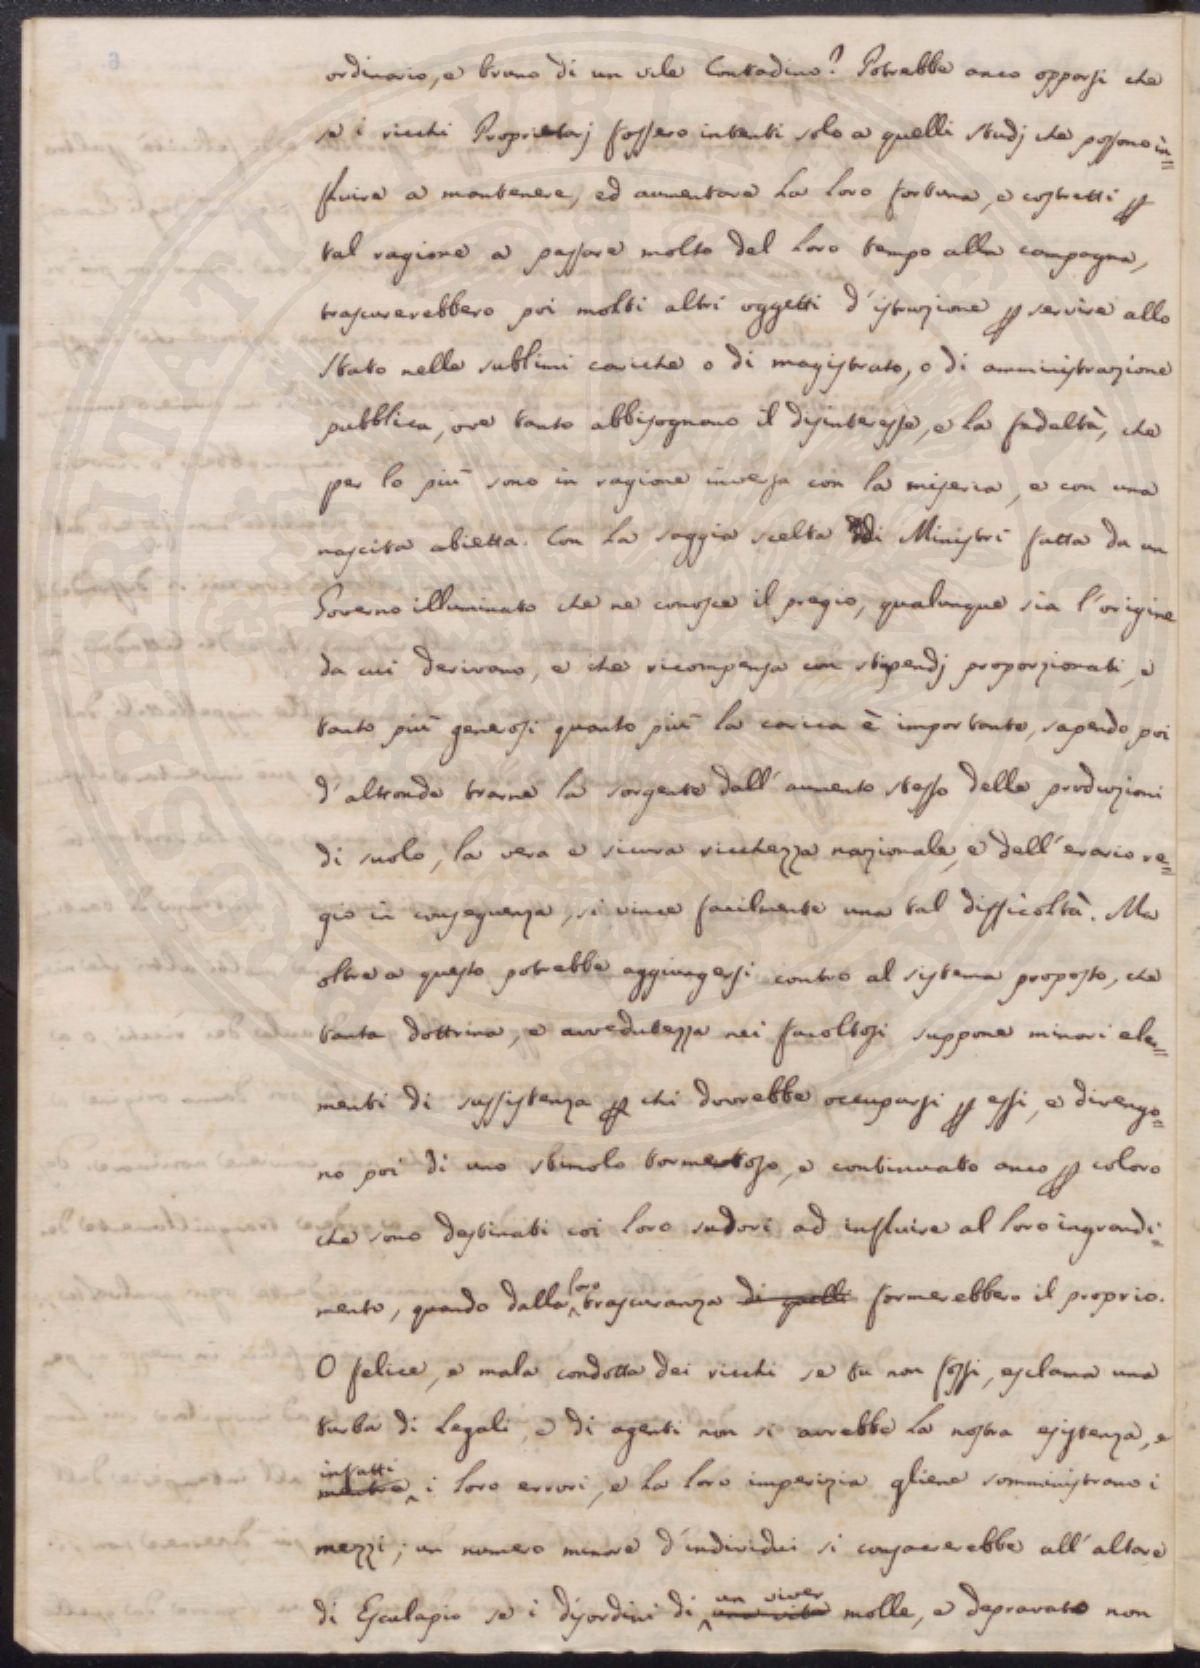 ordinario, e bruno di un vile Contadino? Potrebbe anco opporsi che
se i ricchi Proprietarj fossero intenti solo a quelli studj che possono in=
fluire a mantenere, ed aumentare La Loro fortuna, e costretti p
tal ragione a passare molto del Loro tempo alla campagna,
trascurerebbero poi molti altri oggetti d'istruzione p servire allo
Stato nelle sublimi cariche o di magistrato, o di amministrazione
pubblica, ove tanto abbisognano il disinteresse, e La fedeltà, che
per lo più sono in ragione inversa con la miseria, e con una
nascita abietta. Con La saggia scelta di Ministri fatta da un
Governo illuminato che ne conosce il pregio, qualunque sia l'origine
da cui derivano, e che ricompensa con stipendj proporzionati, e
tanto più generosi quanto più la carica è importante, sapendo poi
d'altronde trarne la sorgente dall'aumento stesso delle produzioni
di suolo, la vera e sicura ricchezza nazionale, e dell'erario re=
gio in conseguenza, si vince facilmente una tal difficoltà. Ma
oltre a questo potrebbe aggiungersi contro al sistema proposto, che
tanta dottrina, e avvedutezza nei facoltosi suppone minori ele=
menti di sussistenza p chi dovrebbe occuparsi p essi, e divengo=
no poi di uno stimolo tormentoso, e continuato anco p coloro
che sono destinati coi loro sudori ad influire al loro ingrandi=
mento, quando dalla loro trascuranza di quelli formerebbero il proprio.
O felice, e mala condotta dei ricchi se tu non fossi, esclama una
turba di Legali, e di agenti non si avrebbe La nostra esistenza, e
infatti mentre i loro errori, e La loro imperizia gliene somministrano i
mezzi; un numero minore d'individui si consacrerebbe all'altare
di Esculapio se i disordini di un viver una vita molle, e depravato non